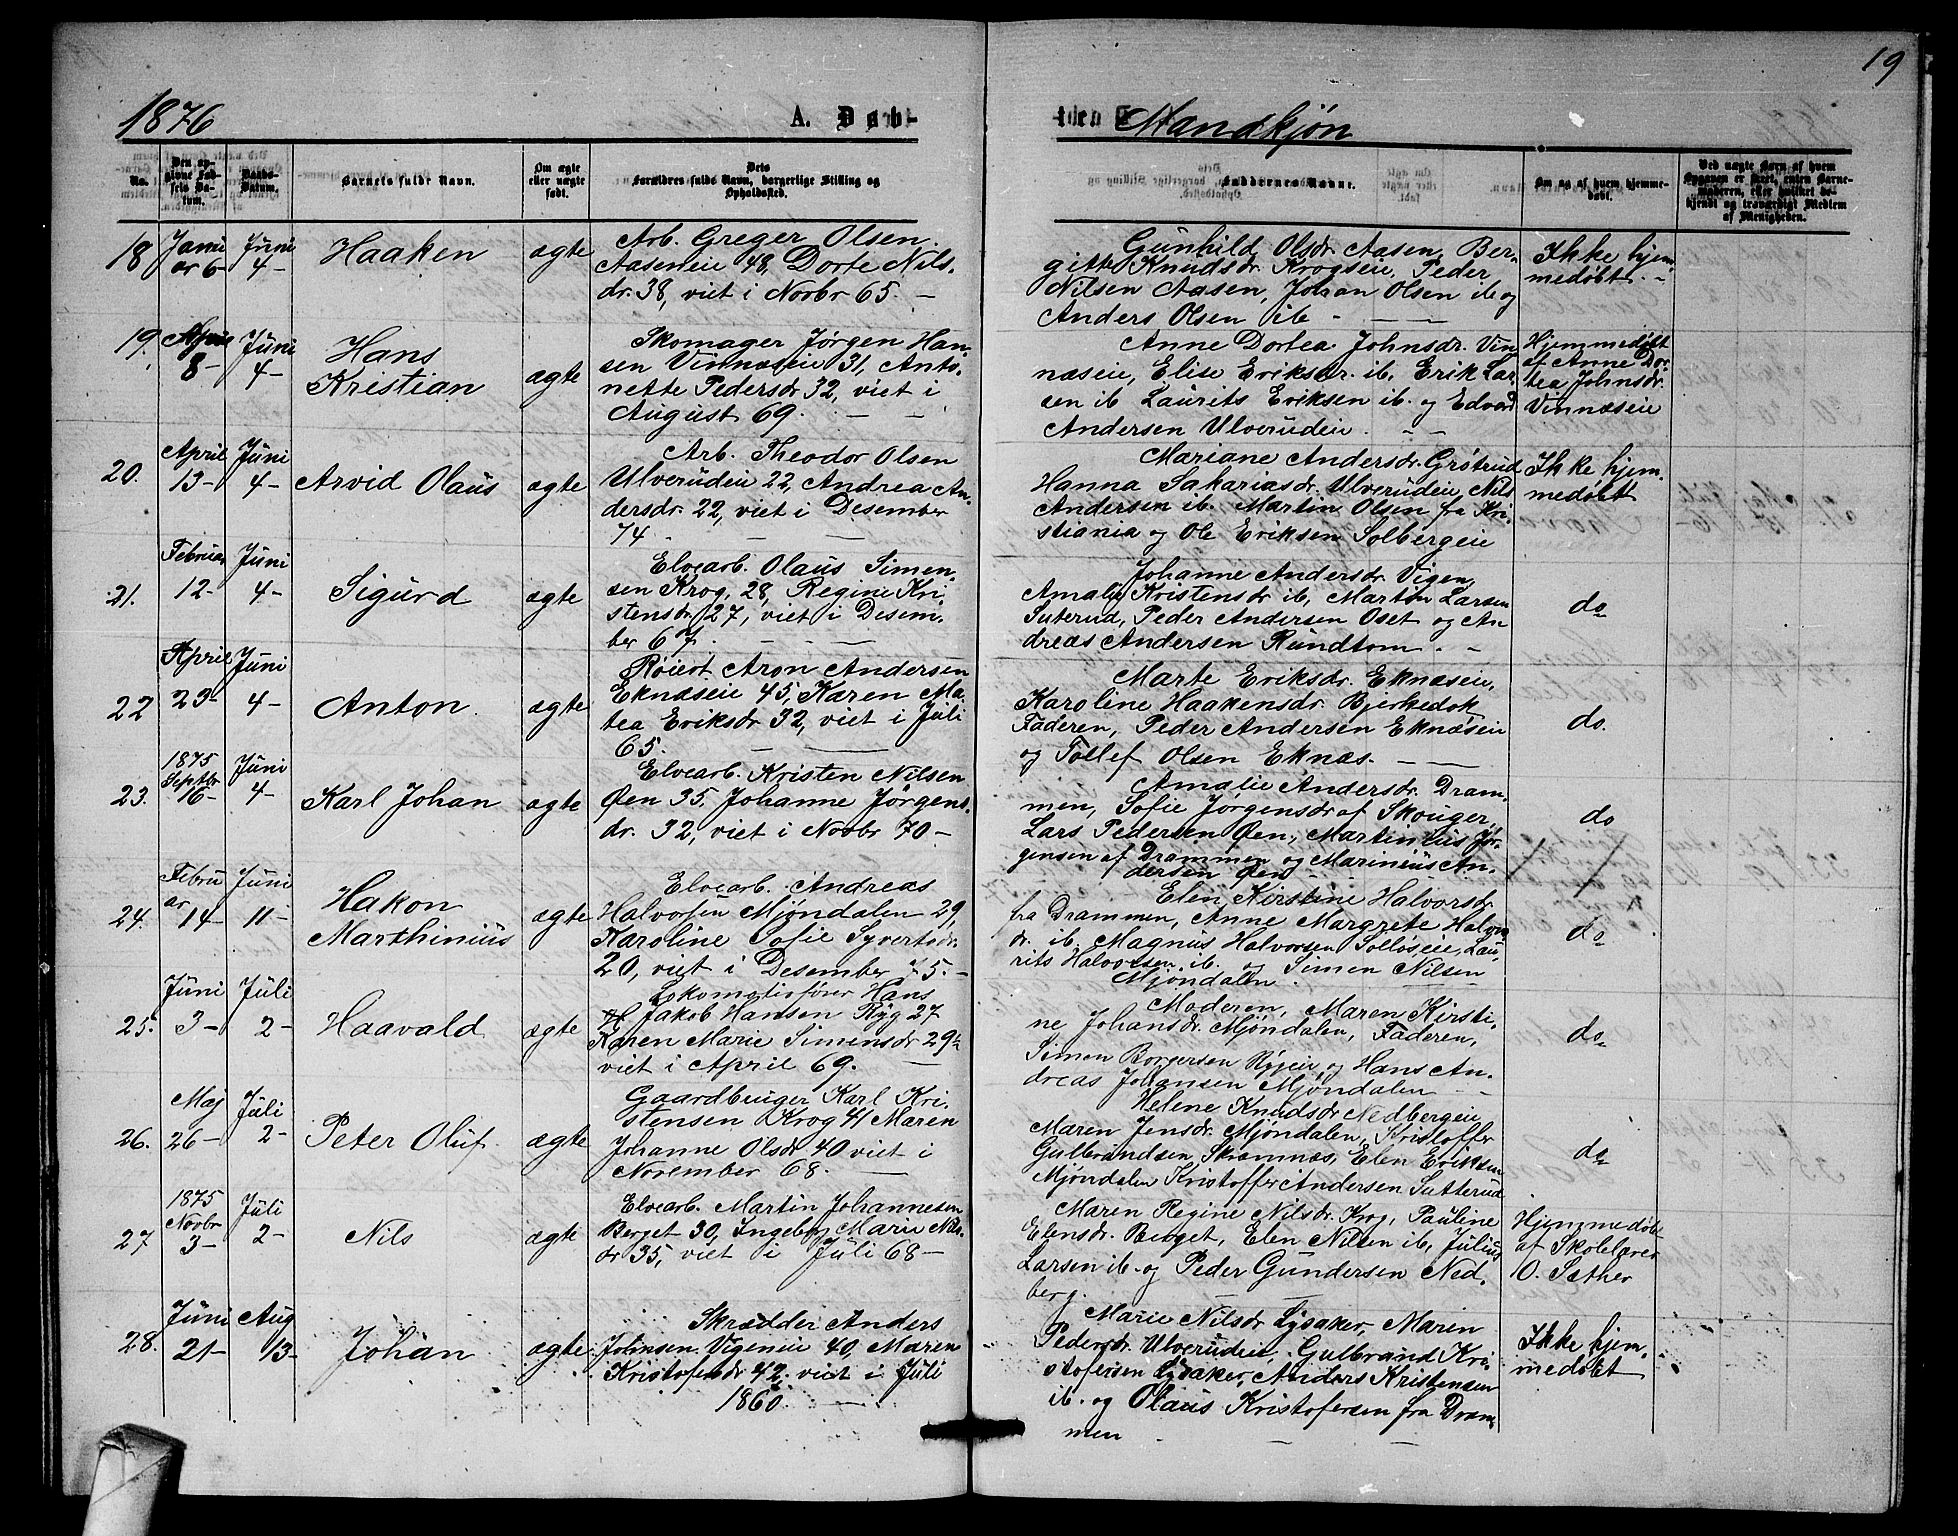 19
1876
A. Døb-
te
Mandkjøn
No.
Den op-
givne Fød-
sels Da-
tum.
Daabs-
Datum.
Barnets fulde Navn.
Om ægte
eller uægte
født.
Dets
Forældres fulde Navn, borgerlige Stilling og
Opholdssted.
Faddernes Navne.
Om og af hvem hjemme-
døbt.
Ved uægte Børn af hvem
Opgaven er skeet, enten Barne-
Moderen, eller hvilket be-
kjendt og troværdigt Medlem
af Menigheden.
18
Janu
ar 6-
Juni
4-
Haaken
ægte
Arb. Greger Olsen
Aaseneie 48, Dorte Nils-
dr. 38, viet i Novbr 65. —
Gunhild Olsdr Aasen, Ber-
gitte Knudsdr. Krogseie, Peder
Nilsen Aasen, Johan Olsen ib og
Anders Olsen ib —
Ikke hjem-
medøbt. -
19.
April
8-
Juni
4-
Hans
Kristian
ægte
Skomager Jørgen Han-
sen Vinnæseie 31, Anto-
nette Pedersdr 32, viet i
August 69. — —
Anne Dortea Johnsdr. Vin-
næseie, Elise Eriksdr. ib, Erik Lar-
sen ib Laurits Eriksen ib. og Edvard
Andersen Ulverudeie. —
Hjemmedøbt
af Anne Dor-
tea Johnsdr.
Vinnæseie
20.
April
13-
Juni
4-
Arvid Olaus
ægte
Arb. Theodor Olsen
Ulverudeie 22, Andrea An-
dersdr. 22, viet i Desember
74 — — —
Mariane Andersdr. Grøtrud
Hanna Sakariasdr. Ulverudeie, Nils
Andersen ib. Martin Olsen fra Kri-
stiania og Ole Eriksen Solbergeie
Ikke hjem-
medøbt
21.
Februar
12-
Juni
4-
Sigurd
ægte
Elvearb. Olaus Simen-
sen Krog, 28, Regine Kri-
stensdr 27, viet i Desem-
ber 67. — — —
Johanne Andersdr. Vigen,
Amalie Kristensdr ib, Martin Larsen
Suterud, Peder Andersen Oset og An
dreas Andersen Rundtom. -
do
22
April
23-
Juni
4-
Anton
ægte
Røiert Aron Andersen
Eknæseie 45, Karen Ma-
tea Eriksdr 32, viet i Juli
65. — —
Marte Eriksdr. Eknæseie,
Karoline Haakensdr. Bjerkedok
Faderen, Peder Andersen Eknæseie
og Tollef Olsen Eknæs. — —
do.
23.
1875
Septbr
16-
Juni
4-
Karl Johan
ægte
Elvearb. Kristen Nilsen
Øen 35, Johanne Jørgens-
dr. 32, viet i Novbr 70 —
Amalie Andersdr. Dram-
men, Sofie Jørgensdr af Skouger,
Lars Pedersen Øen, Martinius Jør-
gensen af Drammen og Marinius An-
dersen Øen
do
24.
Febru
ar 14-
Juni
11-
Hakon
Marthinius
ægte
Elvearb. Andreas
Halvorsen Mjøndalen 29,
Karoline Sofie Syvertsdr.
20, viet i Desember 75. —
Elen Kirstine Halvorsdr
fra Drammen, Anne Margrete Halvors
dr. ib. Magnus Halvorsen Solløseie, Lau-
rits Halvorsen ib. og Simen Nilsen
Mjøndalen.
do
25.
Juni
3-
Juli
2-
Haavald
ægte
Lokomotivfører Hans
Jakob Hansen Ryg 27
Karen Marie Simensdr 29½
viet i April 69. —
Moderen, Maren Kirsti-
ne Johansdr. Mjøndalen, Faderen,
Simen Borgersen Rygeie og Hans An-
dreas Johansen Mjøndalen
do
26.
Maj
26-
Juli
2-
Peter Oluf
ægte
Gaardbruger Karl Kri-
stensen Krog 41 Maren
Johanne Olsdr 40 viet i
November 68. —
Helene Knudsdr Nedbergeie
Maren Jensdr. Mjøndalen, Kristoffer
Gulbrandsen Skramnæs, Elen Eriksen
Mjøndalen Kristoffer Andersen Satterud
do
27
1875
Novbr
3-
Juli
2-
Nils
ægte
Elvearb. Martin Johannesen
Berget 30, Ingeborg Marie Nils-
dr 35, viet i Juli 68 —
Maren Regine Nilsdr. Krog, Pauline
Elensdr. Berget, Elen Nilsen ib, Julius
Larsen ib. og Peder Gundersen Ned-
berg.
Hjemmedøbt
af Skolelærer
O. Sæther
28.
Juni
21-
Aug
13-
Johan
ægte
Skrædder Anders
Johnsen Vigeneie 40, Maren
Kristofersdr 42. viet i Juli
1860. —
Marie Nilsdr Lysaker, Maren
Pedersdr Ulverudeie, Gulbrand Kri-
stofersen Lysaker, Anders Kristensen
ib. og Olaus Kristofersen fra Dram-
men
Ikke hjem-
medøbt